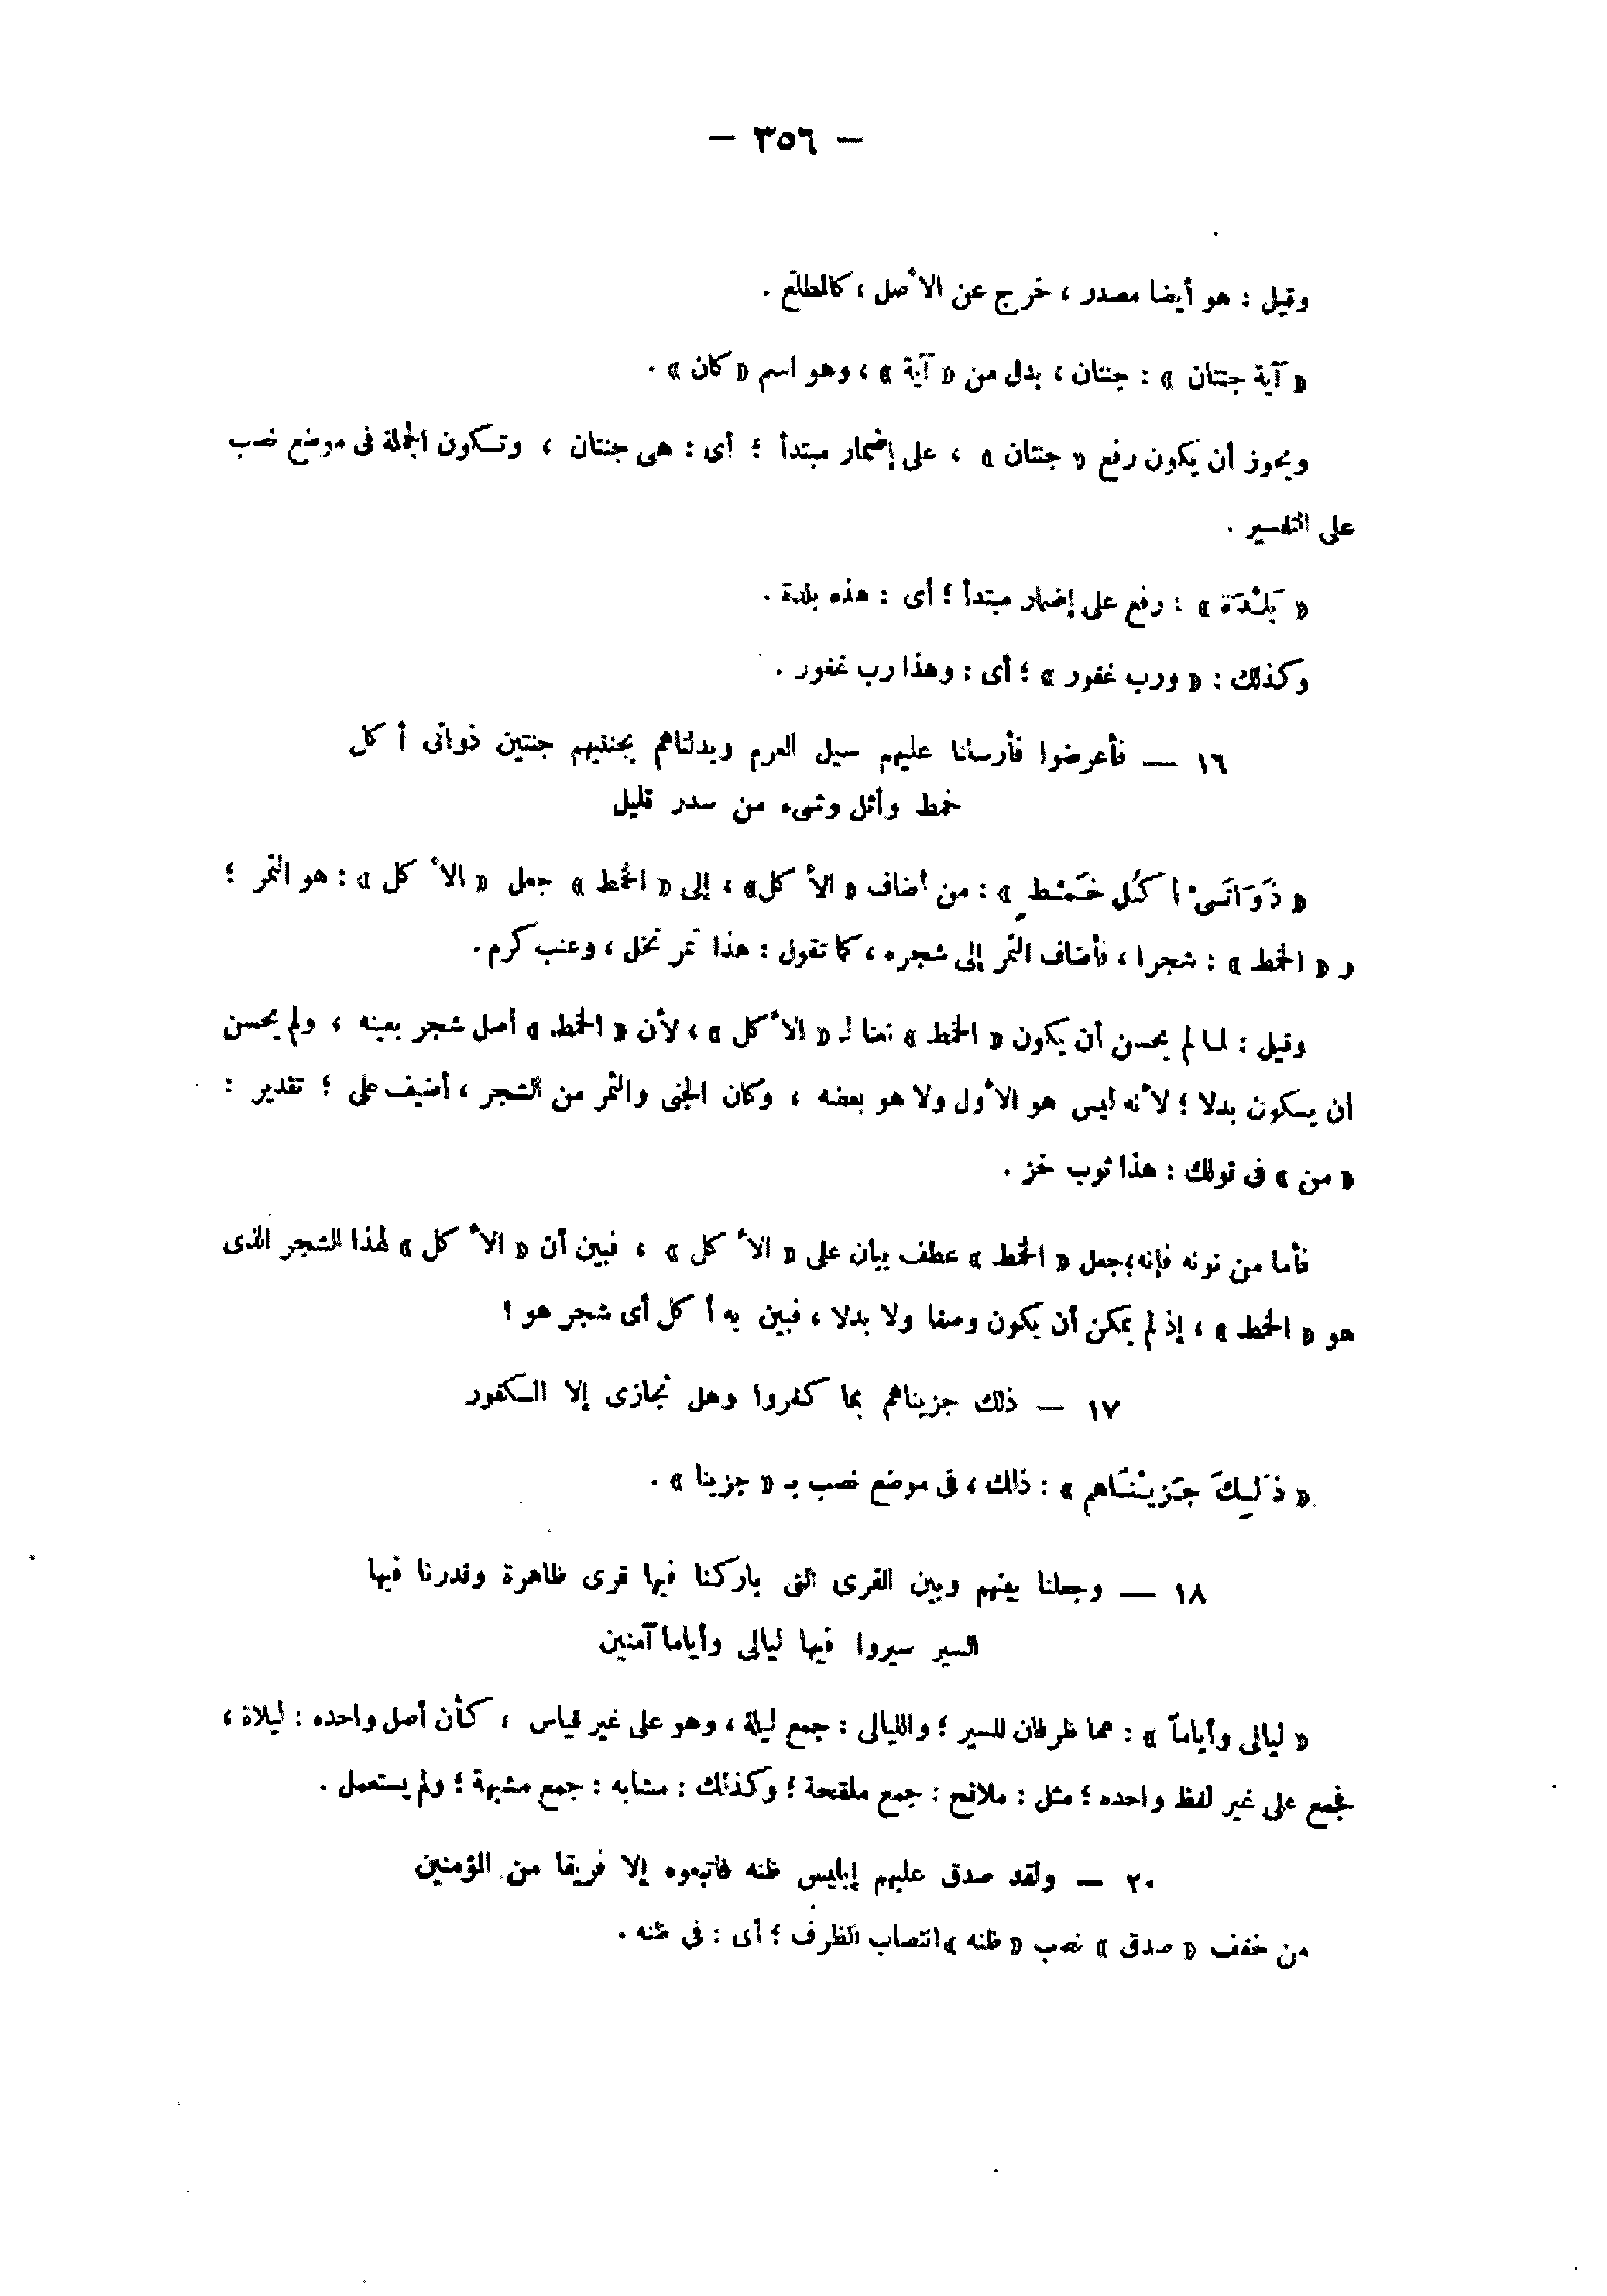 — ٣٥٦ —
وقيل : هو أيضا مصدر ، خرج عن الأصل ، كالمطلع .
« آية جنتان » : جنتان ، بدل من « آية » ، وهو اسم « كان » .
ويجوز أن يكون رفع « جنتان » ، على إضمار مبتدأ ؛ أى : هى جنتان ، وتكون الجملة فى موضع نصب
على التفسير .
« بَلْدَة » : رفع على إضمار مبتدأ ؛ أى : هذه بلدة .
وكذلك : « ورب غفور » ؛ أى : وهذا رب غفور .
١٦ — فأعرضوا فأرسلنا عليهم سيل العرم وبدلناهم بجنتيهم جنتين ذواتى أكل
خمط وأثل وشىء من سدر قليل
« ذَوَاتَىْ أكُل خَمْطٍ » : من أضاف « الأكل» ، إلى « الخمط » جعل « الأكل » : هو الثمر ؛
و « الخمط » : شجرا ، فأضاف الثمر إلى شجره ، كما تقول : هذا تمر نخل ، وعنب كرم .
وقيل : لما لم يحسن أن يكون « الخمط » نعتا لـ « الأكل » ، لأن « الخمط » أصل شجر بعينه ، ولم يحسن
أن يكون بدلا ؛ لأنه ليس هو الأول ولا هو بعضه ، وكان الجنى والثمر من الشجر ، أضيف على ؛ تقدير :
« من » فى قولك : هذا ثوب خز .
فأما من نونه فإنه جعل « الخمط » عطف بيان على « الأكل » ، فبين أن « الأكل » لهذا الشجر الذى
هو « الخمط » ، إذ لم يمكن أن يكون وصفا ولا بدلا ، فبين به أكل أى شجر هو !
١٧ — ذلك جزيناهم بما كفروا وهل نجازى إلا الكفور
« ذَلِكَ جَزيْنَاهم » : ذلك ، فى موضع نصب بـ « جزينا » .
١٨ — وجعلنا بينهم وبين القرى التى باركنا فيها قرى ظاهرة وقدرنا فيها
السير سيروا فيها ليالى وأياما آمنين
« ليالى وأياماً » : هما ظرفان للسير ؛ والليالى : جمع ليلة ، وهو على غير قياس ، كأن أصل واحده : ليلاة ،
فجمع على غير لفظ واحده ؛ مثل : ملاقح : جمع ملقحة ؛ وكذلك : مشابه : جمع مشبهة ؛ ولم يستعمل .
٢٠ — ولقد صدق عليهم إبليس ظنه فاتبعوه إلا فريقا من المؤمنين
من خفف « صدق » نصب « ظنه » انتصاب الظرف ؛ أى : فى ظنه .